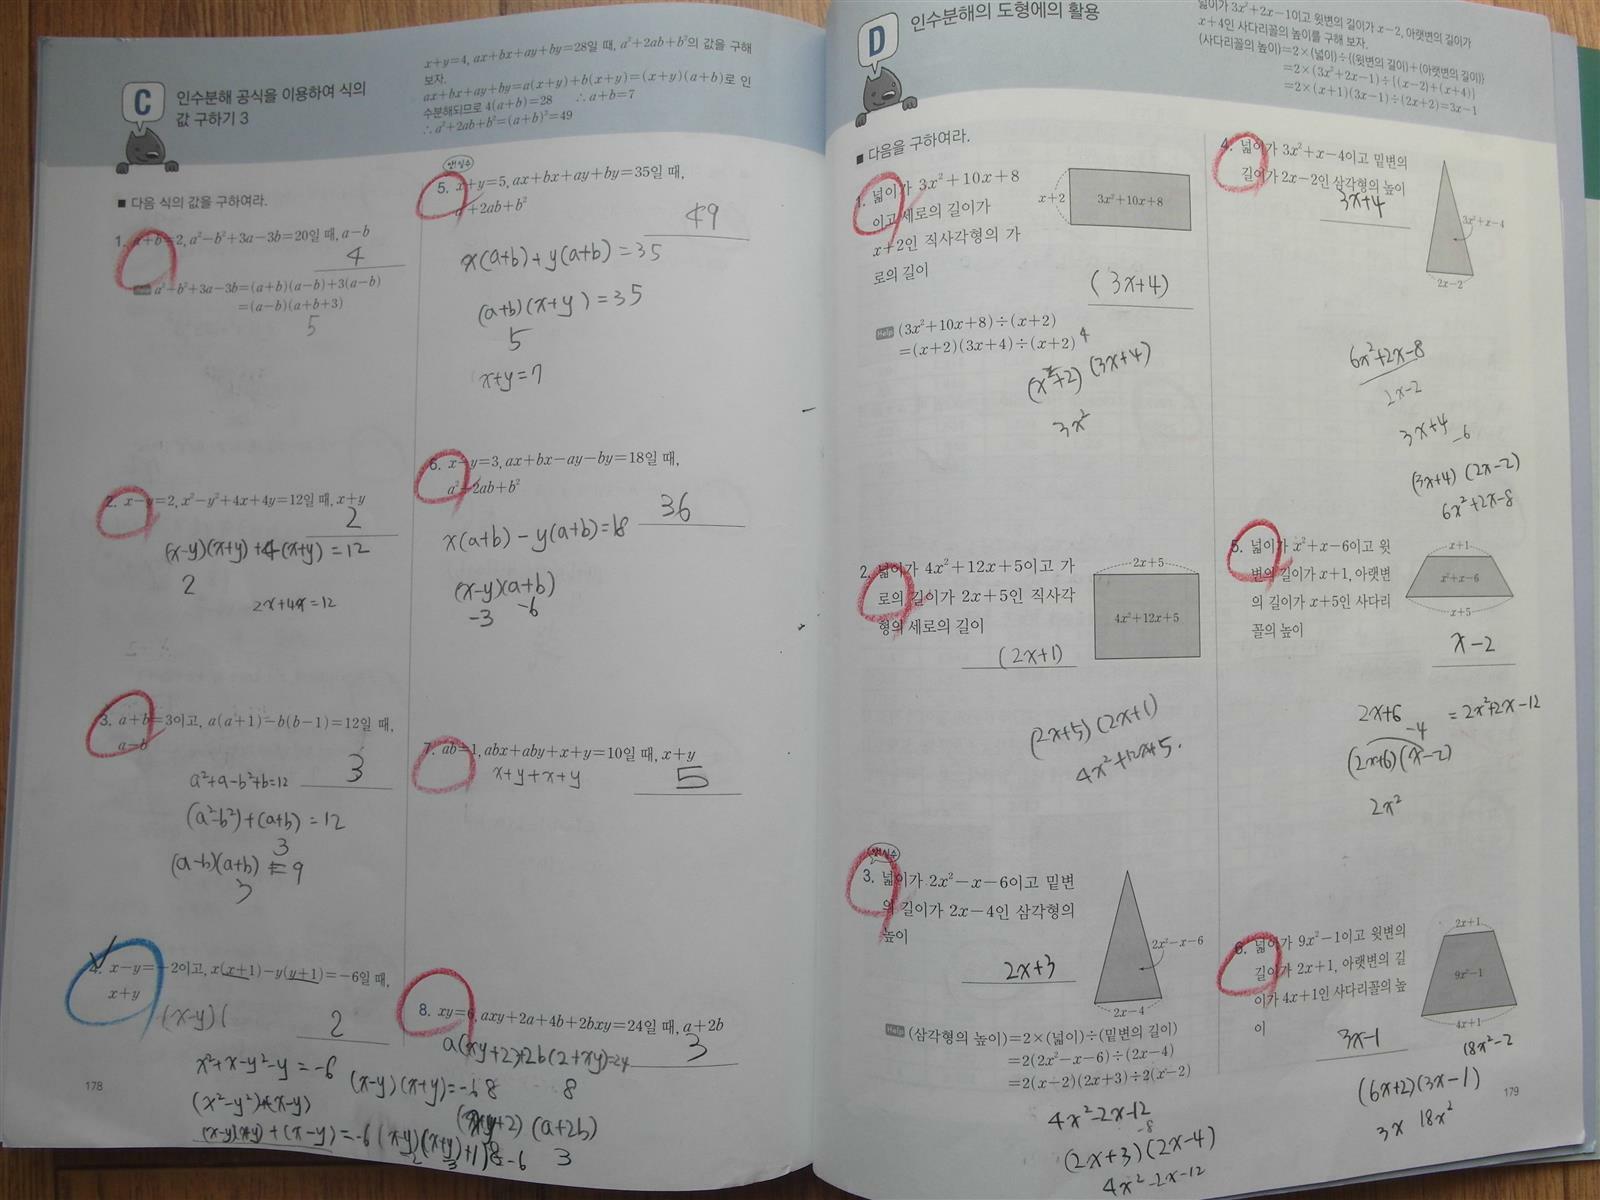 C
인수분해 공식을 이용하여 식의
값 구하기 3
x+y=4, ax+bx+ay+by=28일 때, a²+2ab+b²의 값을 구해
보자.
ax+bx+ay+by=a(x+y)+b(x+y)=(x+y)(a+b)로 인
수분해되므로 4(a+b)=28 ∴ a+b=7
∴ a²+2ab+b²=(a+b)²=49
■ 다음 식의 값을 구하여라.
1. a+b=2, a²-b²+3a-3b=20일 때, a-b
4
Help a²-b²+3a-3b=(a+b)(a-b)+3(a-b)
=(a-b)(a+b+3)
5
2. x-y=2, x²-y²+4x+4y=12일 때, x+y
2
(x-y)(x+y)+4(x+y)=12
2
2x+4x=12
3. a+b=3이고, a(a+1)-b(b-1)=12일 때,
a-b
3
a²+a-b²+b=12
(a²-b²)+(a+b)=12
3
(a-b)(a+b)=9
3
4. x-y=-2이고, x(x+1)-y(y+1)=-6일 때,
x+y
(x-y)(
2
x²+x-y²-y=-6
(x²-y²)+(x-y)
(x-y)(x+y)+(x-y)=-6
(x-y)(x+y)=-6
(x-y)(x+y)+1)=-6
2 3
178
앗!실수
5. x+y=5, ax+bx+ay+by=35일 때,
a²+2ab+b²
49
x(a+b)+y(a+b)=35
(a+b)(x+y)=35
5
x+y=7
6. x-y=3, ax+bx-ay-by=18일 때,
a²+2ab+b²
36
x(a+b)-y(a+b)=18
(x-y)(a+b)
-3 -6
7. ab=1, abx+aby+x+y=10일 때, x+y
x+y+x+y
5
8. xy=6, axy+2a+4b+2bxy=24일 때, a+2b
3
a(xy+2)+2b(2+xy)=24
8 8
(xy+2)(a+2b)
8 3
D
인수분해의 도형에의 활용
넓이가 3x²+2x-1이고 윗변의 길이가 x-2, 아랫변의 길이가
x+4인 사다리꼴의 높이를 구해 보자.
(사다리꼴의 높이)=2×(넓이)÷{(윗변의 길이)+(아랫변의 길이)}
=2×(3x²+2x-1)÷{(x-2)+(x+4)}
=2×(x+1)(3x-1)÷(2x+2)=3x-1
■ 다음을 구하여라.
1. 넓이가 3x²+10x+8
이고 세로의 길이가
x+2인 직사각형의 가
로의 길이
x+2
3x²+10x+8
(3x+4)
Help (3x²+10x+8)÷(x+2)
=(x+2)(3x+4)÷(x+2)
4
(x+2)(3x+4)
3x²
2. 넓이가 4x²+12x+5이고 가
로의 길이가 2x+5인 직사각
형의 세로의 길이
2x+5
4x²+12x+5
(2x+1)
(2x+5)(2x+1)
4x²+12x+5.
앗!실수
3. 넓이가 2x²-x-6이고 밑변
의 길이가 2x-4인 삼각형의
높이
2x²-x-6
2x-4
2x+3
Help (삼각형의 높이)=2×(넓이)÷(밑변의 길이)
=2(2x²-x-6)÷(2x-4)
=2(x-2)(2x+3)÷2(x-2)
4x²-2x-12
-8
(2x+3)(2x-4)
4x²-2x-12
4. 넓이가 3x²+x-4이고 밑변의
길이가 2x-2인 삼각형의 높이
3x+4
3x²+x-4
2x-2
6x²+2x-8
2x-2
3x+4
-6
(3x+4)(2x-2)
6x²+2x-8
5. 넓이가 x²+x-6이고 윗
변의 길이가 x+1, 아랫변
의 길이가 x+5인 사다리
꼴의 높이
x+1
x²+x-6
x+5
x-2
2x+6 =2x²+2x-12
-4
(2x+6)(x-2)
2x²
6. 넓이가 9x²-1이고 윗변의
길이가 2x+1, 아랫변의 길
이가 4x+1인 사다리꼴의 높
이
2x+1
9x²-1
4x+1
3x-1
18x²-2
(6x+2)(3x-1)
3x 18x²
179